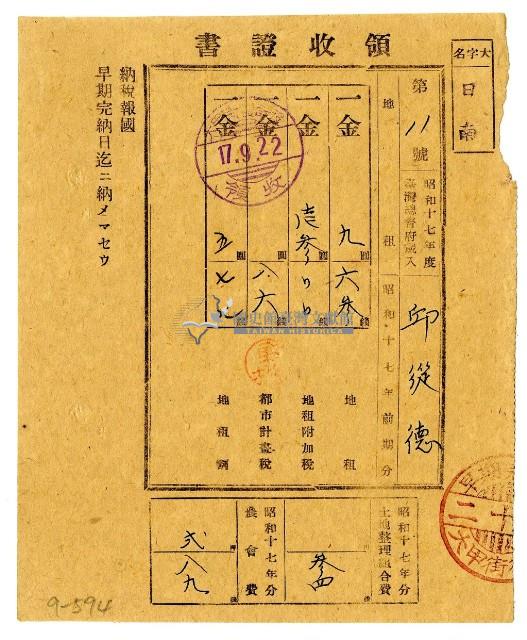 領收證書
大字名
日南
第 11 號
昭和十七年度
臺灣總督府歲入
邱從德
地租
昭和十七年前期分
一金 九圓六参錢 地租
一金 圓 錢 地租附加税
一金 圓八六錢 都市計畫税
一金 五圓 錢 地租割
17.9.22
納税報國
早期完納日迄ニ納メマセウ
昭和十七年分
土地整理組合費
参四
昭和十七年分
農會費
弍八九
國史館臺灣文獻館
TAIWAN HISTORICA
9-594